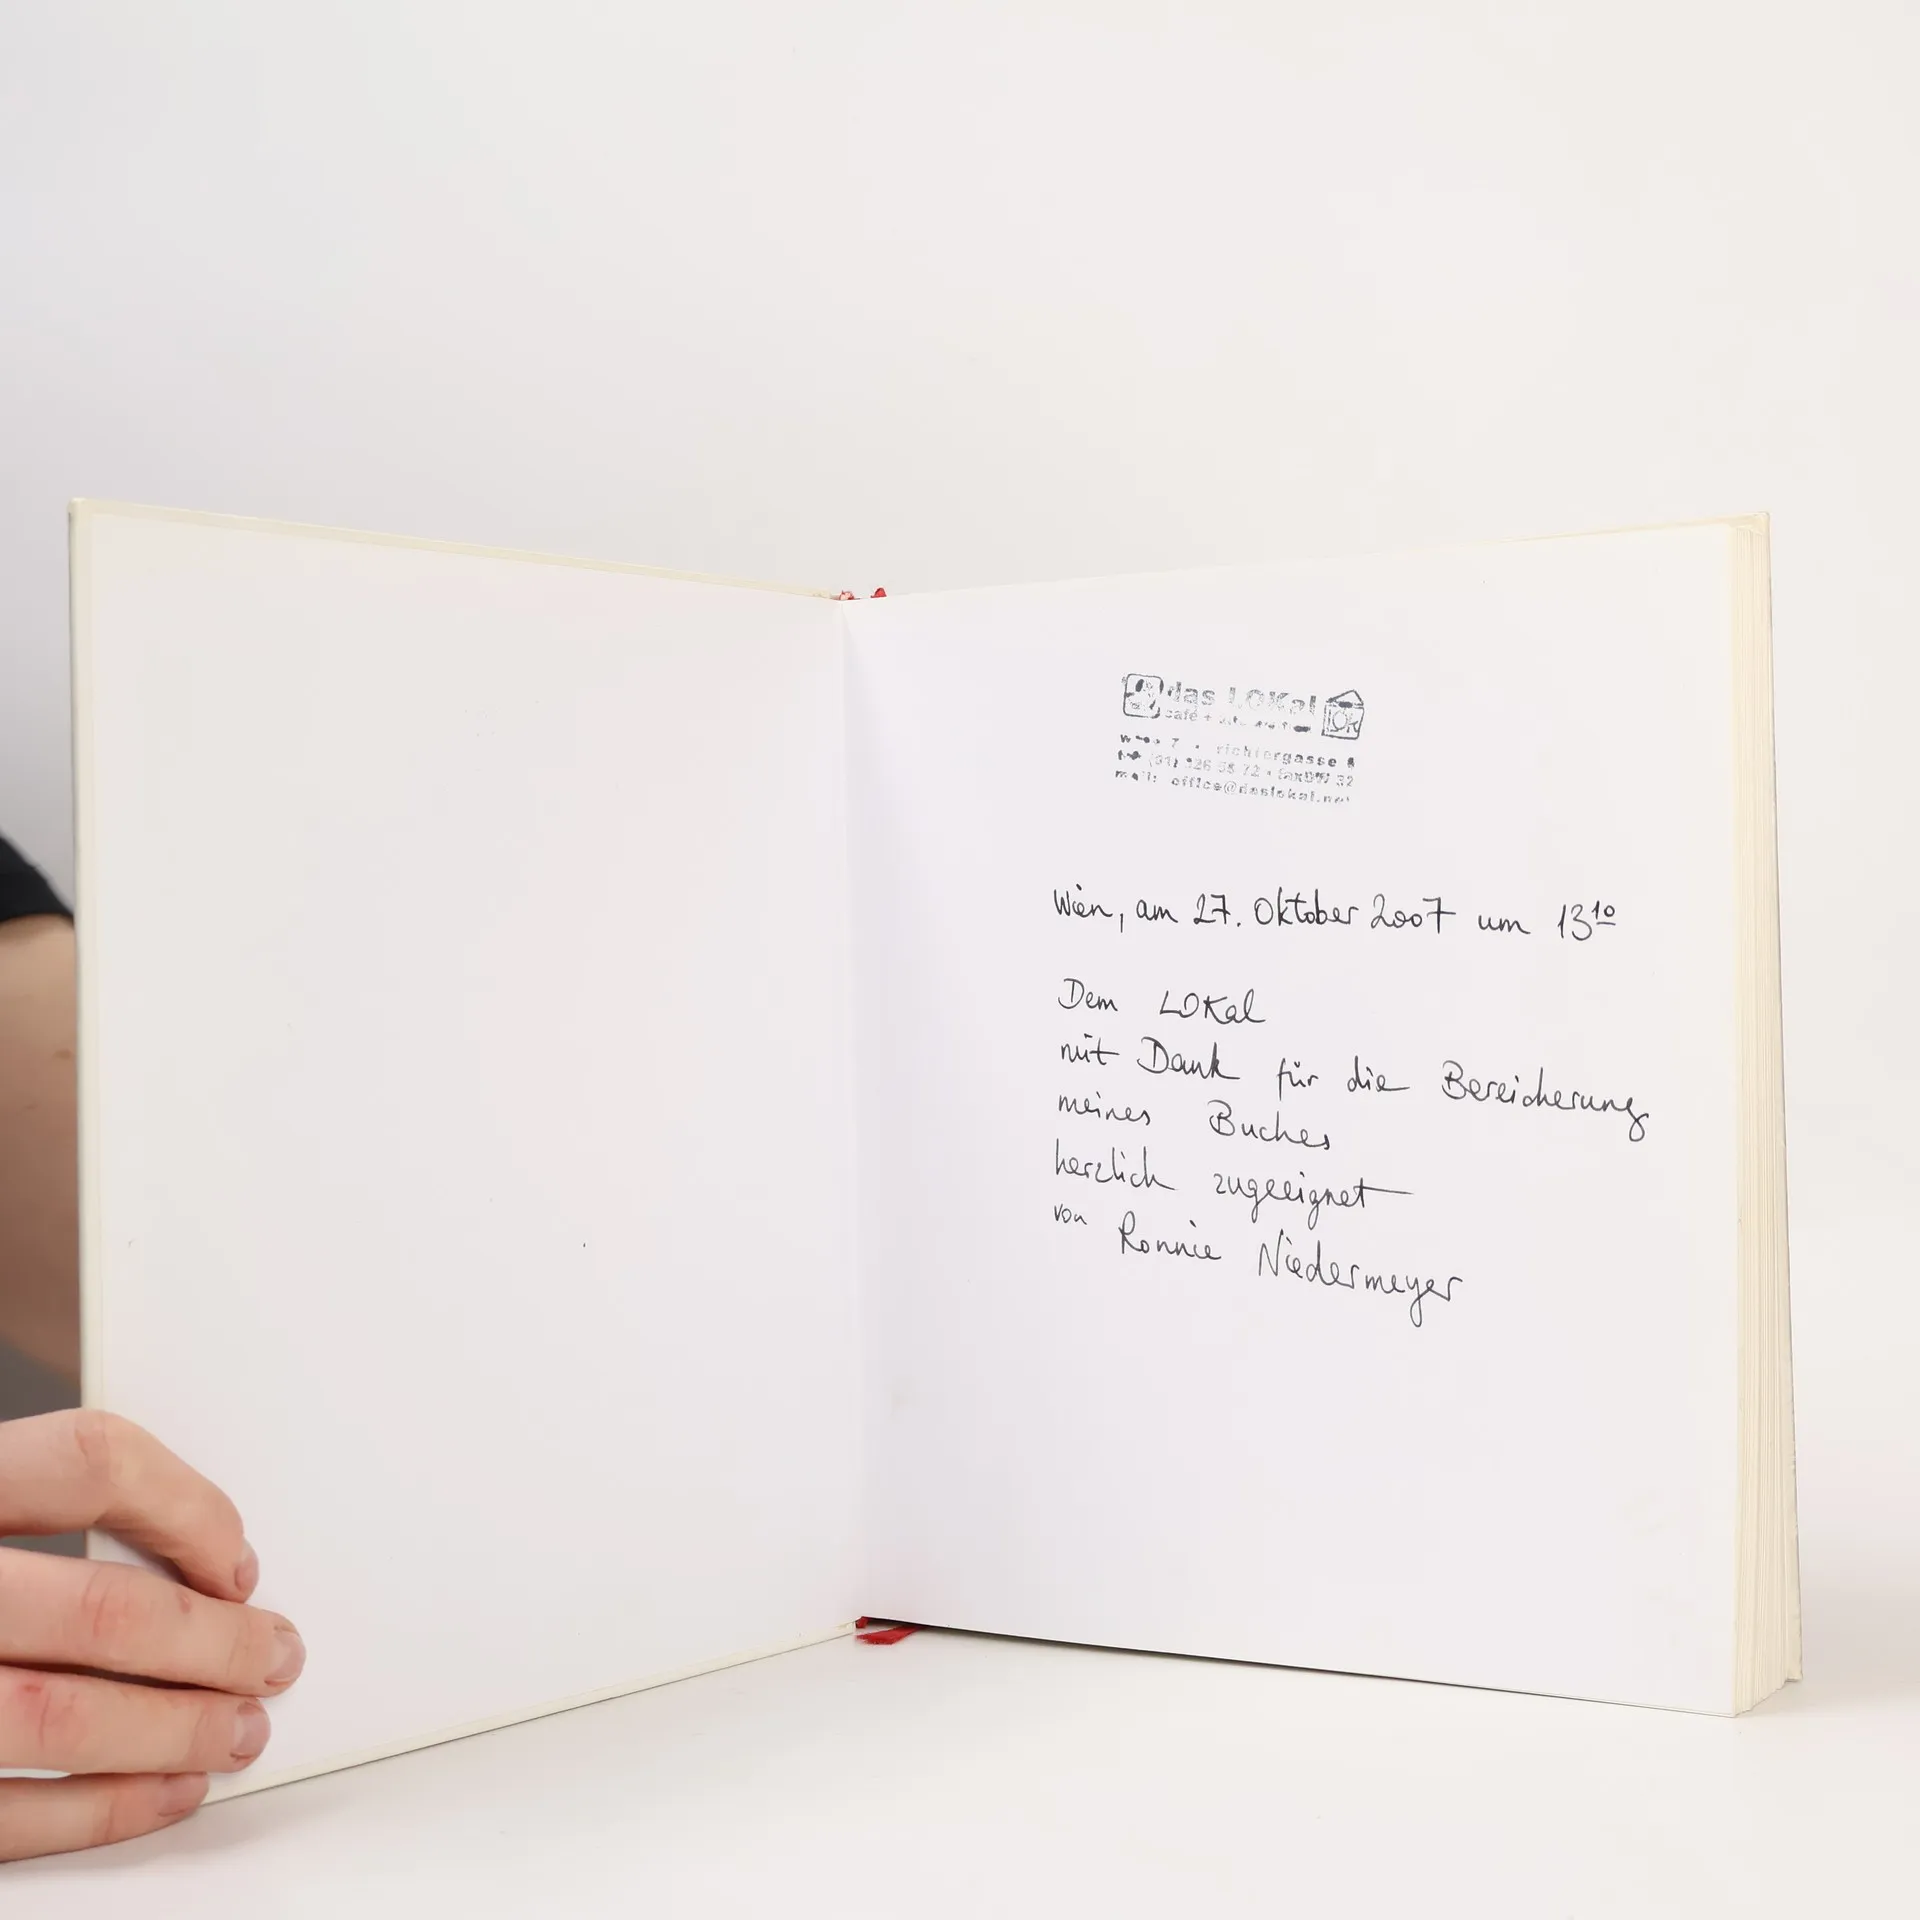 das LOKal
café +
LOK
wien 7 . richtergasse 6
tel (01) 526 58 72 • faxDW 32
mail: office@daslokal.net
Wien, am 27. Oktober 2007 um 13¹⁰
Dem LOKal
mit Dank für die Bereicherung
meines Buches
herzlich zugeeignet
von Ronnie Niedermeyer